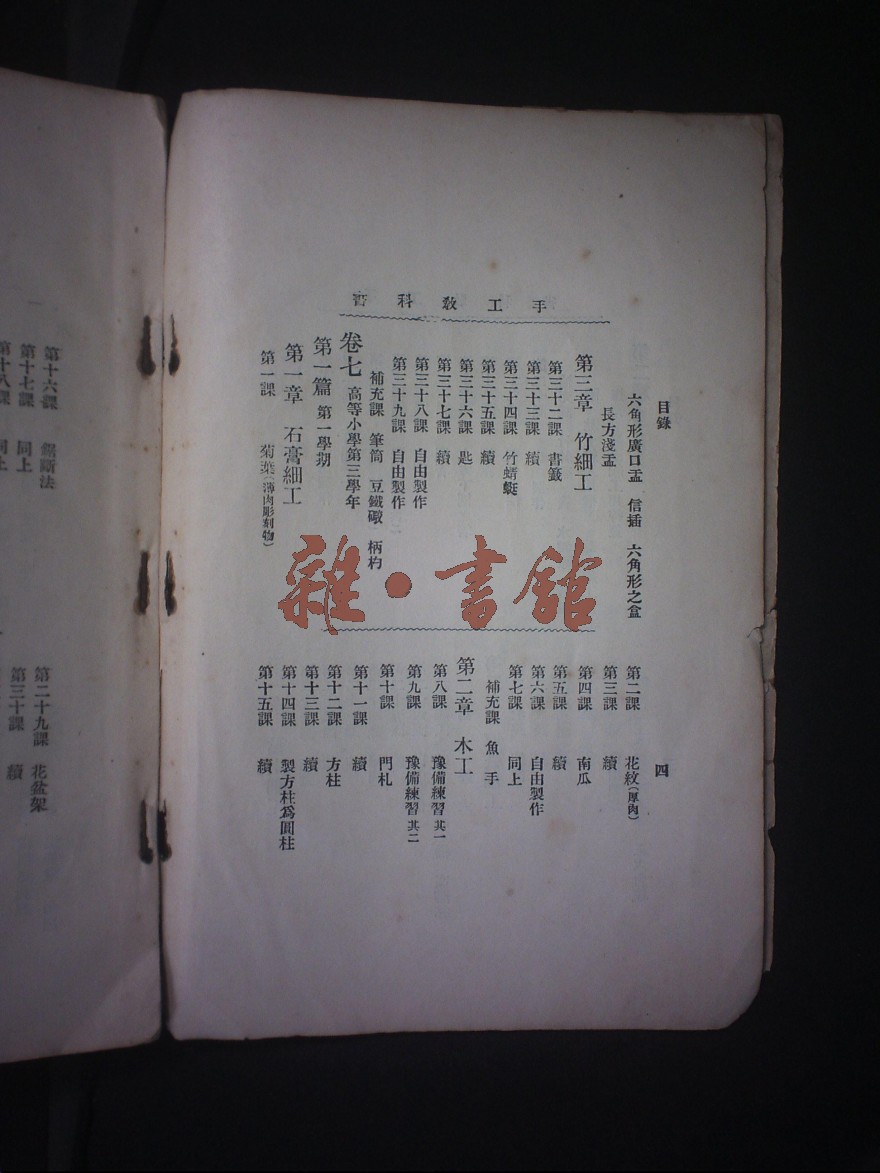 目錄
四
手工教科書
六角形廣口盂 信插 六角形之盒
長方淺盂
第三章 竹細工
第三十二課 書籤
第三十三課 續
第三十四課 竹蜻蜓
第三十五課 續
第三十六課 匙
第三十七課 續
第三十八課 自由製作
第三十九課 自由製作
補充課 筆筒 豆鐵礮 柄杓
卷七 高等小學第三學年
第一篇 第一學期
第一章 石膏細工
第一課 菊葉(薄肉彫刻物)
第二課 花紋(厚肉)
第三課 續
第四課 南瓜
第五課 續
第六課 自由製作
第七課 同上
補充課 魚 手
第二章 木工
第八課 豫備練習其一
第九課 豫備練習其二
第十課 門札
第十一課 續
第十二課 方柱
第十三課 續
第十四課 製方柱爲圓柱
第十五課 續
第十六課 鋸斷法
第十七課 同上
第十八課 同上
第二十九課 花盆架
第三十課 續
雜·書館